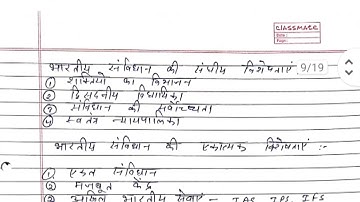 CLASSMATE
Date :
Page :
भारतीय संविधान की संघीय विशेषताएं 9/19
① शक्तियों का विभाजन
② द्विसदनीय विधायिका
③ संविधान की सर्वोच्चता
④ स्वतंत्र न्यायपालिका
भारतीय संविधान की एकात्मक विशेषताएं :-
① एकल संविधान
② मजबूत केंद्र
③ अखिल भारतीय सेवाएं - IAS, IPS, IFS